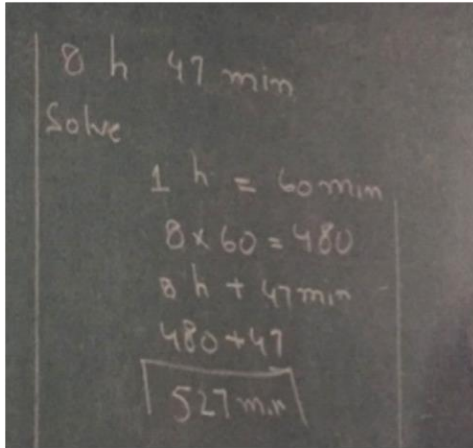 8 h 47 min
Solve
1 h = 60 min
8 x 60 = 480
8 h + 47 min
480 + 47
527 min